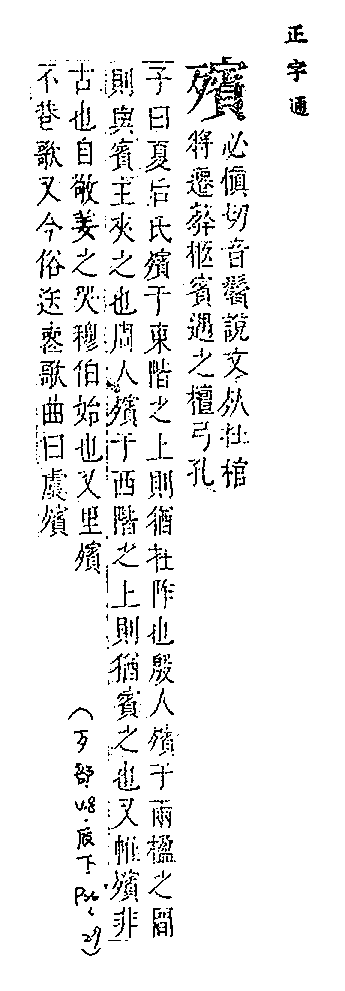 正字通
殯
必愼切音鬢說文从在棺
將遷葬柩賓遇之檀弓孔
子曰夏后氏殯于東階之上則猶在阼也殷人殯于兩楹之間
則與賓主夾之也周人殯于西階之上則猶賓之也又帷殯非
古也自敬姜之哭穆伯始也又里殯
不巷歌又今俗送塟歌曲曰虞殯
(歹部 底下)